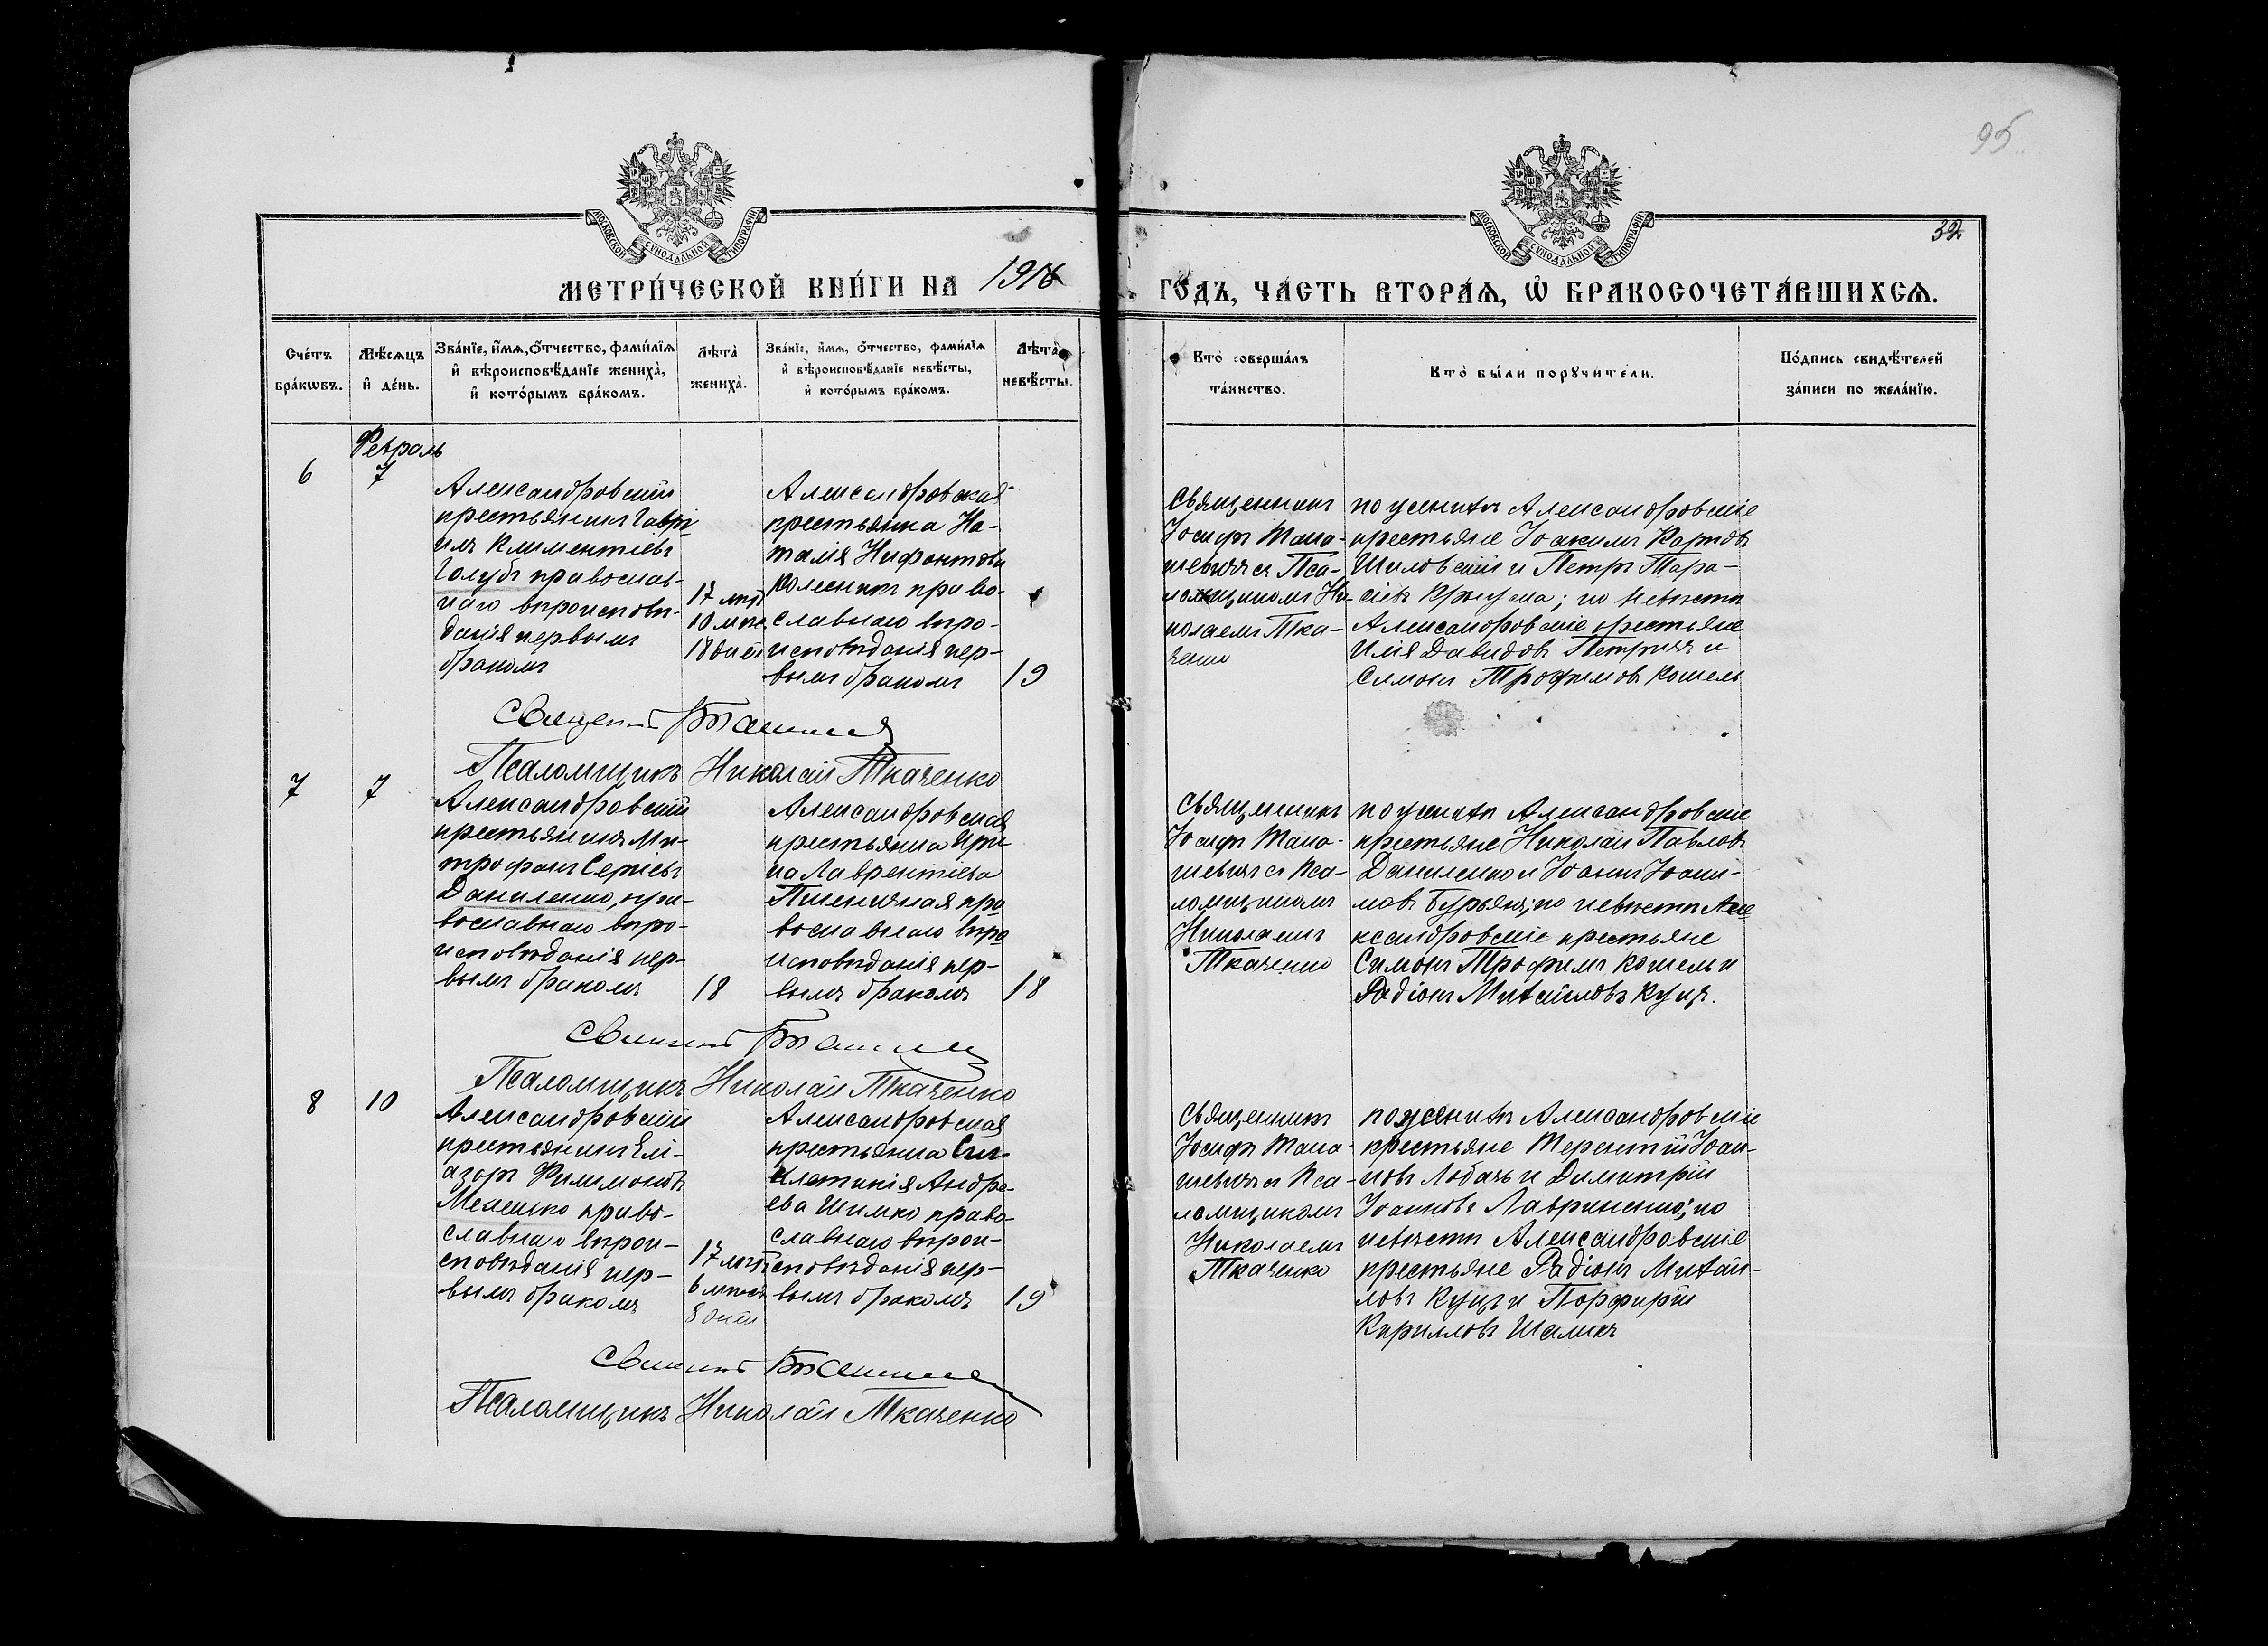 95
32
МОСКОВСКОЙ СѴНОДАЛЬНОЙ ТИПОГРАФІИ
МОСКОВСКОЙ СѴНОДАЛЬНОЙ ТИПОГРАФІИ
МЕТРИ́ЧЕСКОЙ КНИ́ГИ НА 1916
ГО́ДЪ, ЧА́СТЬ ВТОРА́Я, Ѡ БРАКОСОЧЕТА́ВШИХСЯ.
Сче́тъ бра́кѡвъ.
Мѣ́сяцъ и де́нь.
Зва́нїе, и́мѧ, ѻ́тчество, фами́лїя
и вѣроисповѣ́данїе жениха̀,
и кото́рымъ бра́комъ.
Лѣта̀ жениха̀.
Зва́нїе, и́мѧ, ѻ́тчество, фами́лїя
и вѣроисповѣ́данїе невѣ́сты,
и кото́рымъ бра́комъ.
Лѣта̀ невѣ́сты.
Кто̀ соверша́лъ
та́инство.
Кто̀ бы́ли порꙋчи́тели.
По́дпись свидѣ́телей
за́писи по жела́нїю.
6
Февраль
7
Александровскій
крестьянинъ Гаврі-
илъ Климентіевъ
Голубъ православ-
наго вѣроисповѣ-
данія первымъ
бракомъ
17 лѣтъ
10 мѣс.
18 дней
Александровская
крестьянка На-
талія Нифонтова
Колесникъ право-
славнаго вѣро-
исповѣданія пер-
вымъ бракомъ
19
Священникъ
Іосифъ Мана-
шевичъ съ Пса-
ломщикомъ Ни-
колаемъ Тка-
ченко
по женихѣ Александровскіе
крестьяне Іоакимъ Карповъ
Шиловскій и Петръ Тара-
сіевъ ; по невѣстѣ
Александровскіе крестьяне
Илія Давидовъ Петричъ и
Симонъ Трофимовъ Кошель
Священ
Псаломщикъ Николай Ткаченко
7
7
Александровскій
крестьянинъ Ми-
трофанъ Сергіевъ
Даниленко, пра-
вославнаго вѣро-
исповѣданія пер-
вымъ бракомъ
18
Александровская
крестьянка Ири-
на Лаврентіева
Пшеничная пра-
вославнаго вѣро
исповѣданія пер-
вымъ бракомъ
18
Священникъ
Іосифъ Мана-
шевичъ съ Пса-
ломщикомъ
Николаемъ
Ткаченко
по женихѣ Александровскіе
крестьяне Николай Павловъ
Даниленко и Іоаннъ Іоаки-
мовъ Бурьянъ; по невѣстѣ Але-
ксандровскіе крестьяне
Симонъ Трофимъ Кошель и
Радіонъ Михайловъ Куцъ.
Псаломщикъ Николай Ткаченко
8
10
Александровскій
крестьянинъ Елі-
азаръ Филимоновъ
право-
славнаго вѣрои-
сповѣданія пер-
вымъ бракомъ
17 лѣтъ
6 мѣсяц
8 дней
Александровская
крестьянка Син-
клетикія Андре-
ева Шимко право-
славнаго вѣрои-
сповѣданія пер-
вымъ бракомъ
19
Священникъ
Іосифъ Мана-
шевичъ съ Пса-
ломщикомъ
Николаемъ
Ткаченко
по женихѣ Александровскіе
крестьяне Терентій Іоан-
новъ Лобачъ и Димитрій
Іоанновъ Лавриненко; по
невѣстѣ Александровскіе
крестьяне Радіонъ Михай-
ловъ Куцъ и Порфирій
Кирилловъ Шаликъ
Псаломщикъ Николай Ткаченко